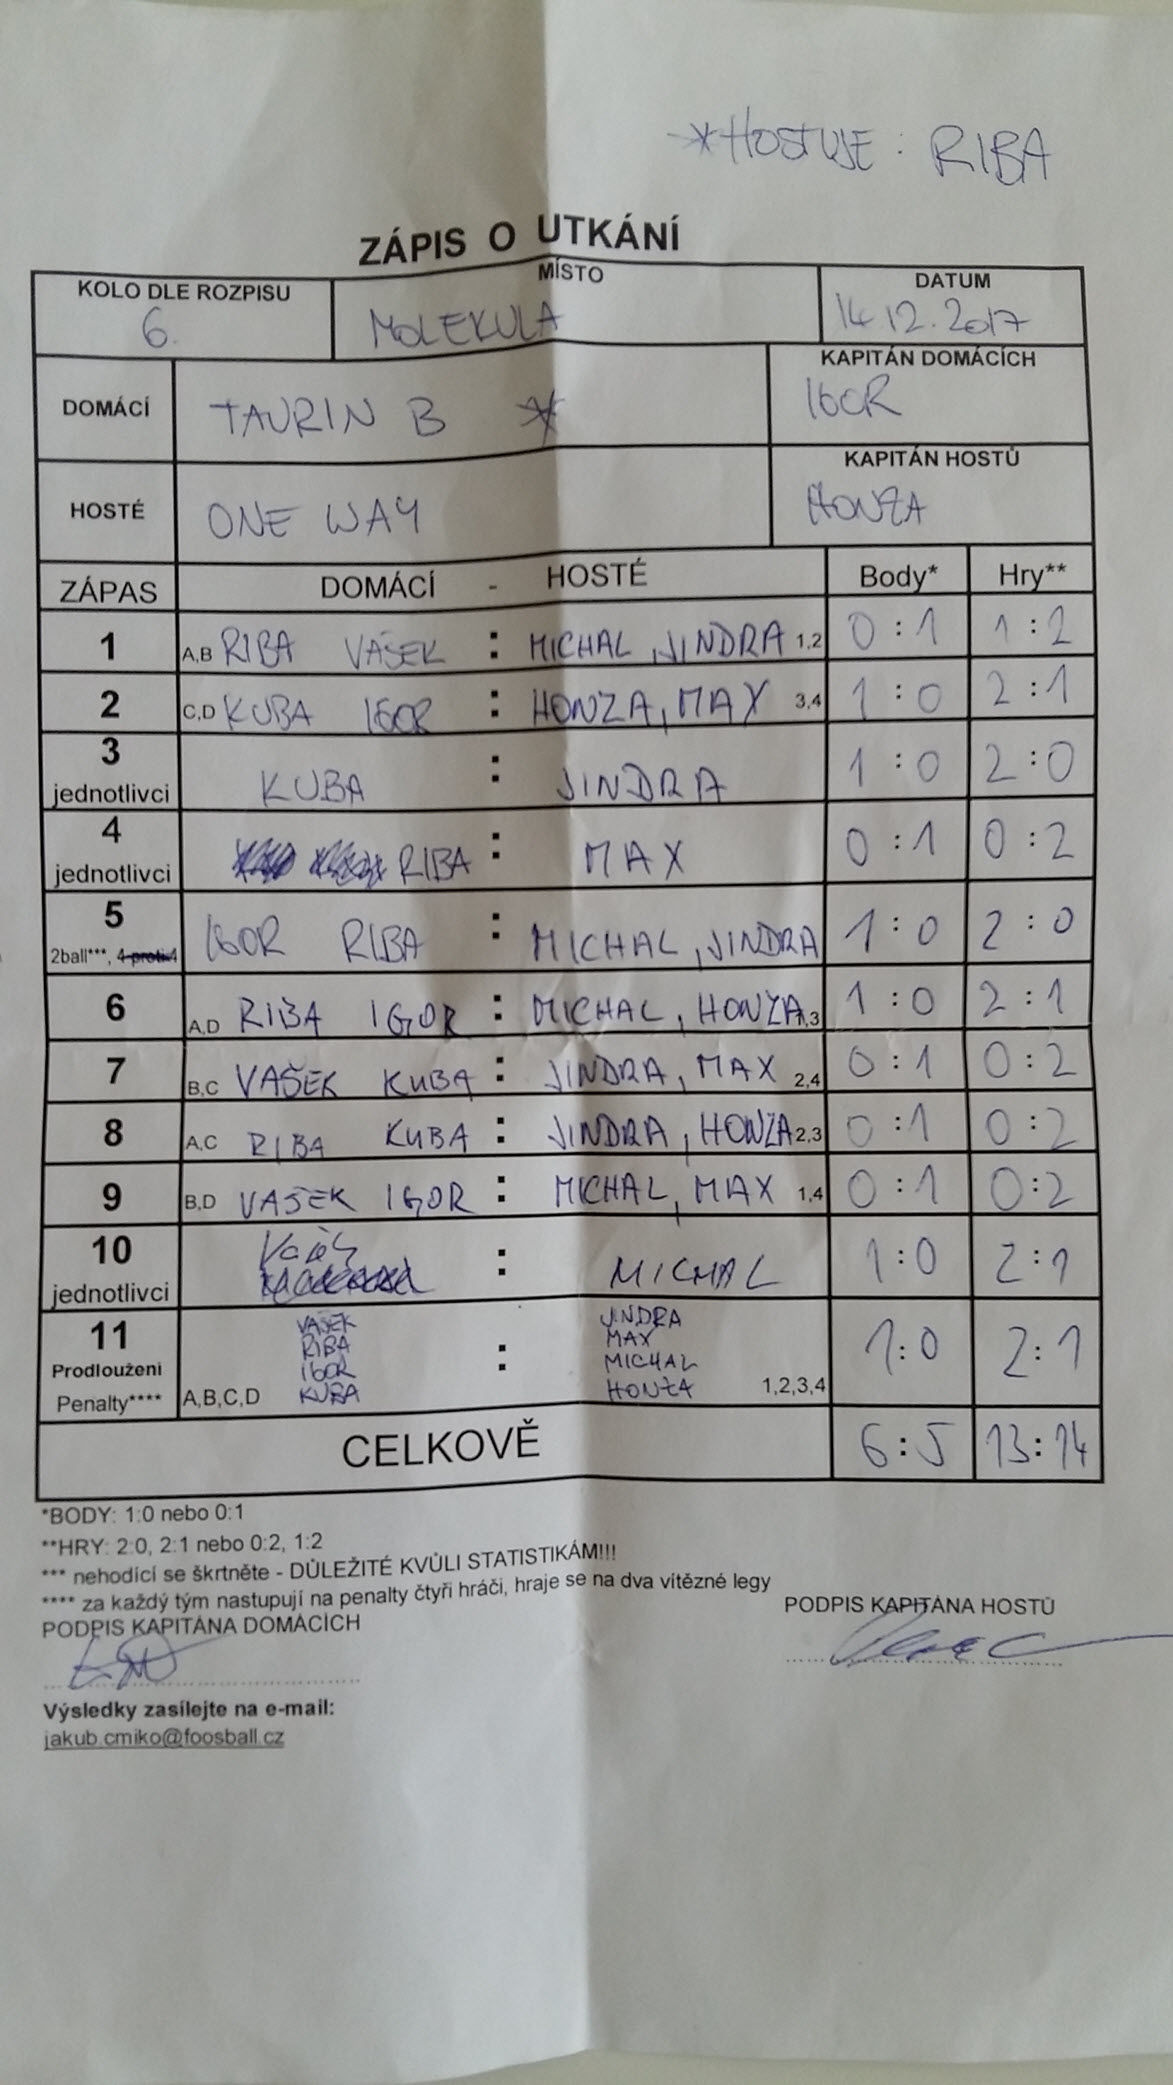 *HOSTUJE: RIBA
ZÁPIS O UTKÁNÍ
KOLO DLE ROZPISU MÍSTO DATUM
6. MOLEKULA 14.12.2017
DOMÁCÍ TAURIN B * KAPITÁN DOMÁCÍCH
IGOR
HOSTÉ ONE WAY KAPITÁN HOSTŮ
HONZA
ZÁPAS DOMÁCÍ - HOSTÉ Body* Hry**
1 A,B RIBA VAŠEK : MICHAL, JINDRA 1,2 0:1 1:2
2 C,D KUBA IGOR : HONZA, MAX 3,4 1:0 2:1
3
jednotlivci KUBA : JINDRA 1:0 2:0
4
jednotlivci RIBA : MAX 0:1 0:2
5
2ball***, 4 proti 4 IGOR RIBA : MICHAL, JINDRA 1:0 2:0
6 A,D RIBA IGOR : MICHAL, HONZA 1,3 1:0 2:1
7 B,C VAŠEK KUBA : JINDRA, MAX 2,4 0:1 0:2
8 A,C RIBA KUBA : JINDRA, HONZA 2,3 0:1 0:2
9 B,D VAŠEK IGOR : MICHAL, MAX 1,4 0:1 0:2
10
jednotlivci : MICHAL 1:0 2:1
11
Prodloužení
Penalty**** A,B,C,D
VAŠEK
RIBA
IGOR
KUBA
:
JINDRA
MAX
MICHAL
HONZA 1,2,3,4
1:0 2:1
CELKOVĚ 6:5 13:14
*BODY: 1:0 nebo 0:1
**HRY: 2:0, 2:1 nebo 0:2, 1:2
*** nehodící se škrtněte - DŮLEŽITÉ KVŮLI STATISTIKÁM!!!
**** za každý tým nastupují na penalty čtyři hráči, hraje se na dva vítězné legy
PODPIS KAPITÁNA DOMÁCÍCH PODPIS KAPITÁNA HOSTŮ
Výsledky zasílejte na e-mail:
jakub.cmiko@foosball.cz